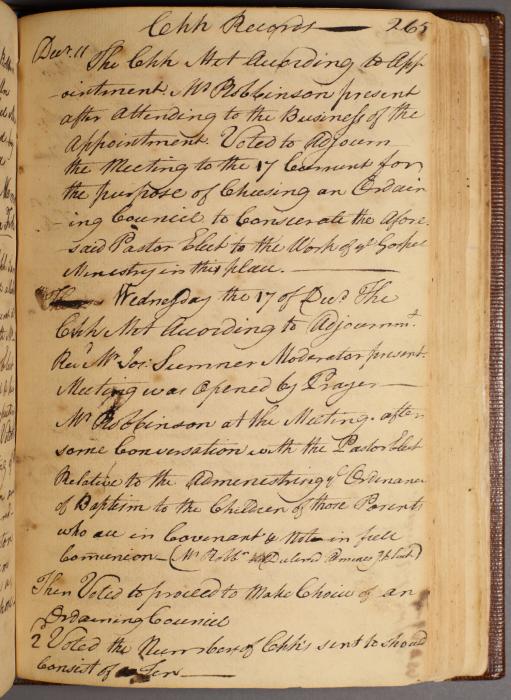 Chh Records 265
Decr. 11 The Chh Met Acording to App-
ointment. Mr Robbinson present
after Attending to the Business of the
Appointment. Voted to Adjourn
the Meeting to the 17 Current for
the purpose of Chusing an Ordain
ing Council to Consecrate the Afore-
said Pastor Elect to the Work of ye Gospel
Ministry in this place.
Wednesday the 17 of Decr. The
Chh Met Acording to Adjournmt.
Revd. Mr Jos: Sumner Moderator present.
Meeting was Opened by Prayer
Mr Robbinson at the Meeting. after
some Conversation with the Pastor Elect
Relative to the Adminestring ye Ordinance
of Baptism to the Children of those Parents
who are in Covenant & Not in full
Comunion (Mr Robbn
Then Voted to proceed to Make Choice of an
Ordaining Council
2 Voted the Number of Chhs sent to should
Consist of Ten